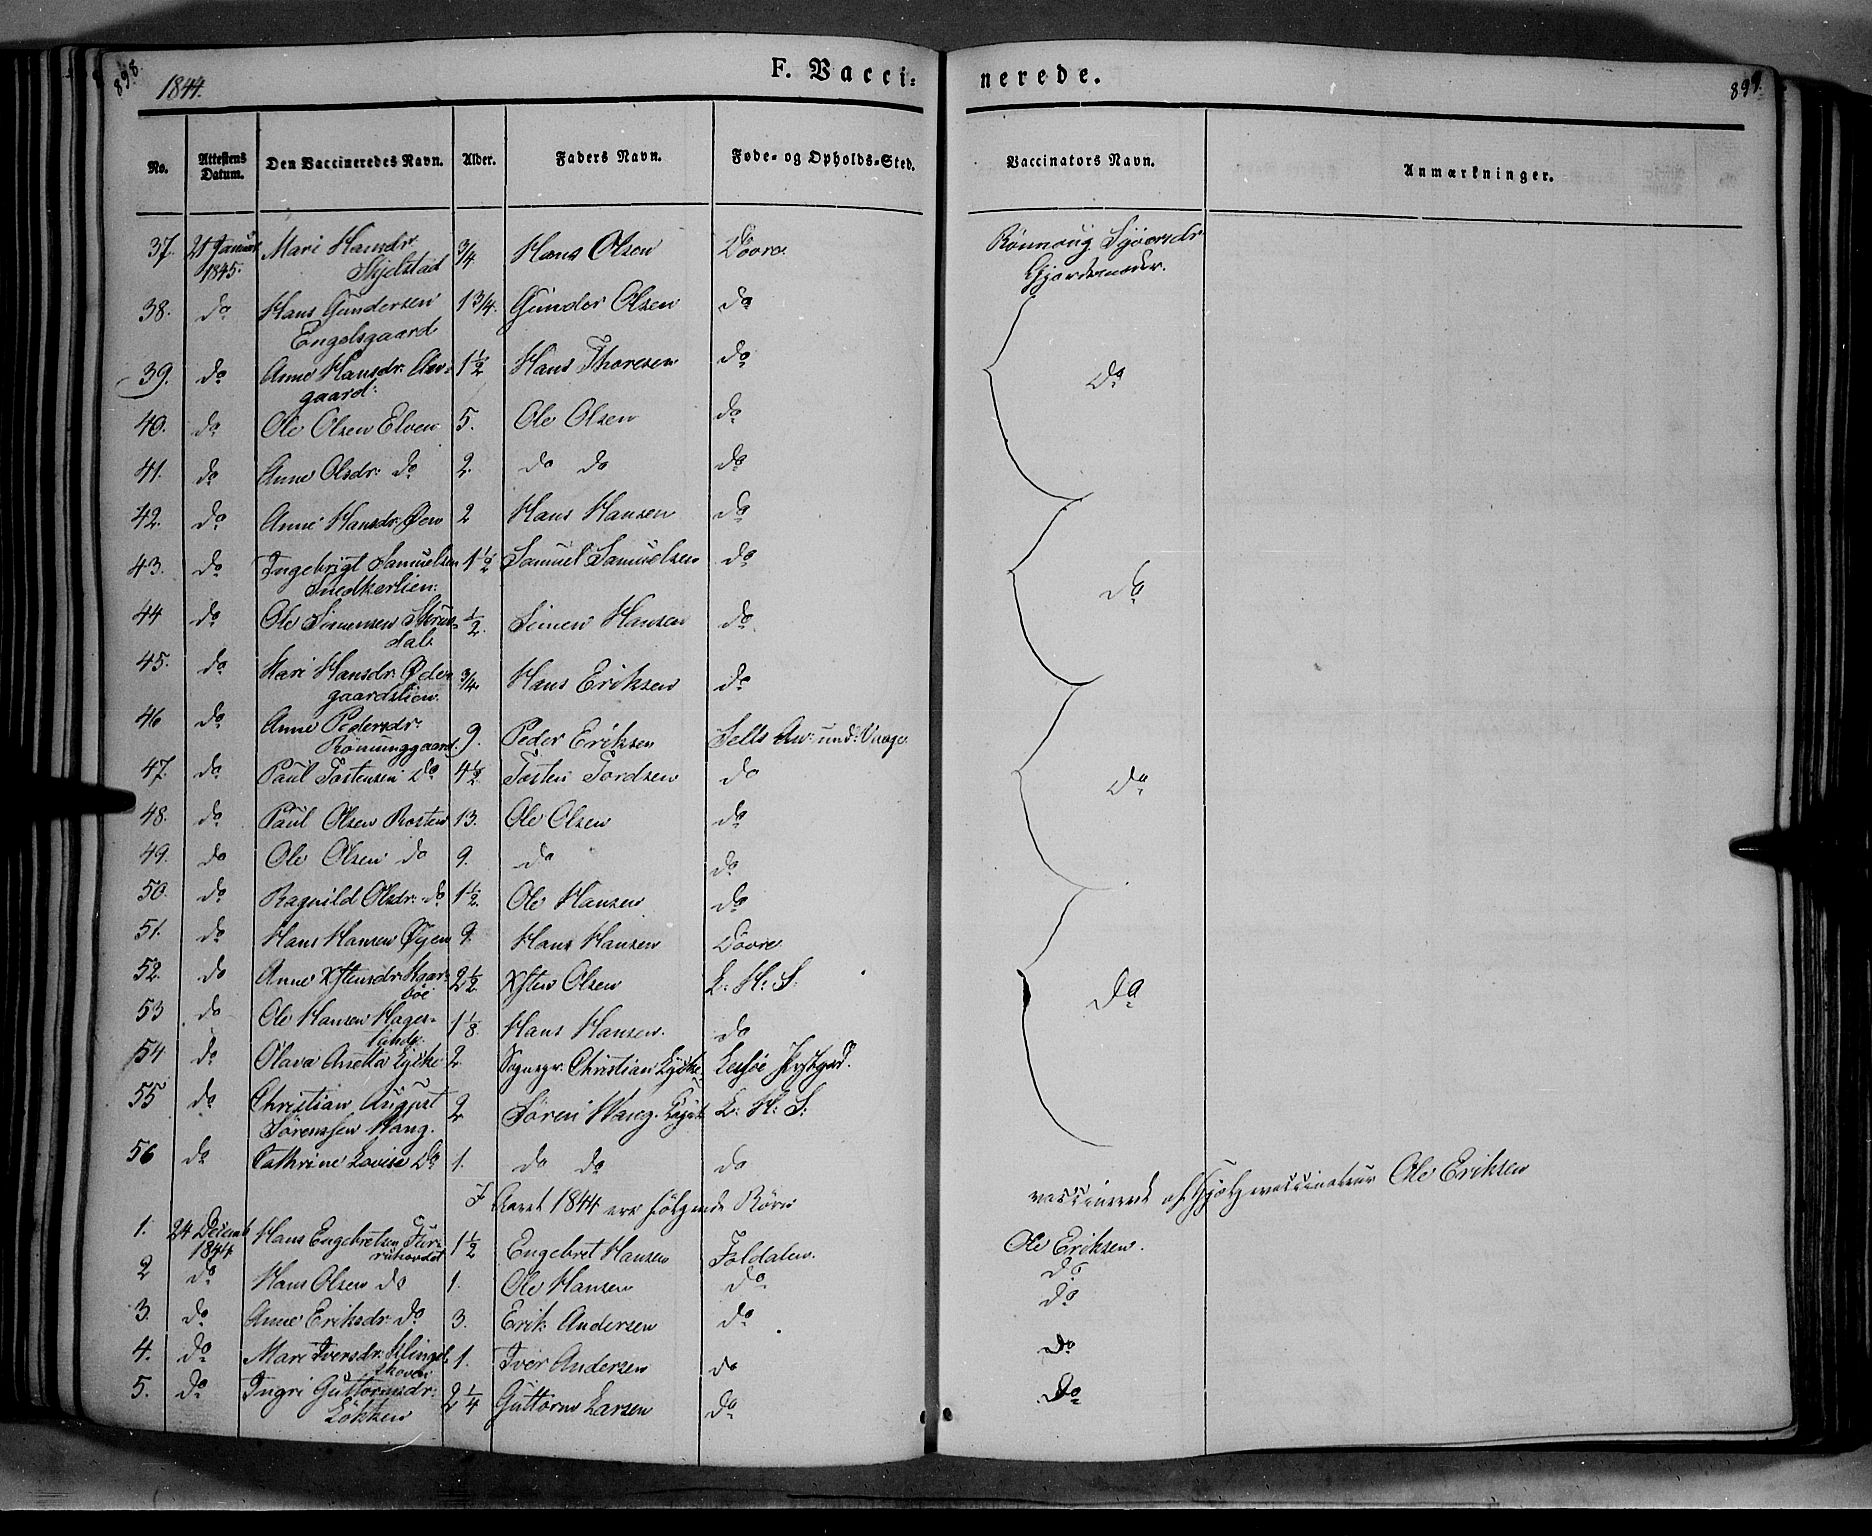 898. 1844. F. Vacci: nerede. 899.
No. Attestens Datum. Den Vaccineredes Navn. Alder. Faders Navn. Føde- og Opholds-Sted. Vaccinators Navn. Anmærkninger.
37. 21 Januar 1845. Mari Hansdr. Skjelstad 3/4 Hans Olsen Dovre. Rønnoug Syversdr Gjordemoder.
38. do Hans Gundersen Engelsgaard 1 3/4. Gunder Olsen do
39. do Anne Hansdr. gaard. 1 1/2 Hans Thoresen do Do
40. do Ole Olsen Elven 5. Ole Olsen do
41. do Anne Olsdr. do 2. do do do
42. do Anne Hansdr. Øen 2 Hans Hansen do
43. do Ingebrigt Samuelsen Snedkerlien. 1 1/2 Samuel Samuelsen do Do
44 do Ole Simensen dal. 1/2. Simen Hansen do
45. do Mari Hansdr. Ødegaardslien. 3/4. Hans Eriksen do
46 do Anne Pedersdr. Rønninggaard. 9. Peder Eriksen Sells An: und: Vaage.
47. do Paul Tostensen Do 4 1/2 Tosten Tordsen do Do
48. do Paul Olsen Rosten 13. Ole Olsen do
49. do Ole Olsen do 9. do do
50. do Ragnild Olsdr. do 1 1/2. Ole Hansen do
51. do Hans Hansen Øyen 9. Hans Hansen Dovre
52. do Anne Xstensdr. 2 1/2 Xsten Olsen L: H: S: Do
53 do Ole Hansen 1 1/8. Hans Hansen. do
54 do Olava Anetta Lycke 2. Sognepr. Christian Lycke. Lessøe Prstgrd.
55 do Christian August Sørenssen Wang. 2 Søren Wang. L: H: S:
56 do Cathrine Lovise Do 1. do do do
I Aaret 1844 ere følgende Børn vaccinerede af Hjælpevaccinateur Ole Eriksen
1. 24 Decemb 1844 Hans Engebretsen Furruhovdet 1 1/2 Engebret Hansen Foldalen. Ole Eriksen.
2 do Hans Olsen do 1. Ole Hansen do do
3. do Anne Eriksdr. do 3. Erik Andersen do do
4. do Mari Iversdr. 1. Iver Andersen do Do
5. do Ingri Guttormsdr. Løkken 2 1/4 Guttorm Larsen do Do